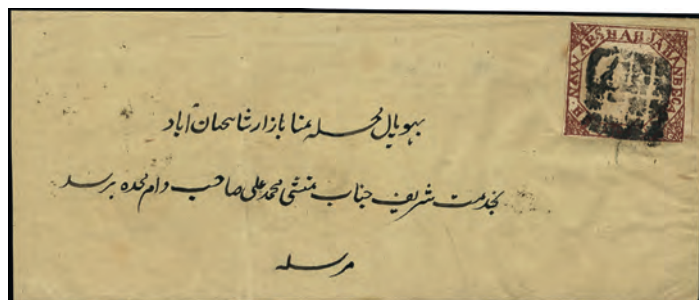 H. NAWABSHAHJAHANBEGA
بہوپال محلہ منا بازار شاہجہان آباد
بخدمت شریف جناب منشی محمد علی صاحب دام مجدہ برسد
مرسلہ